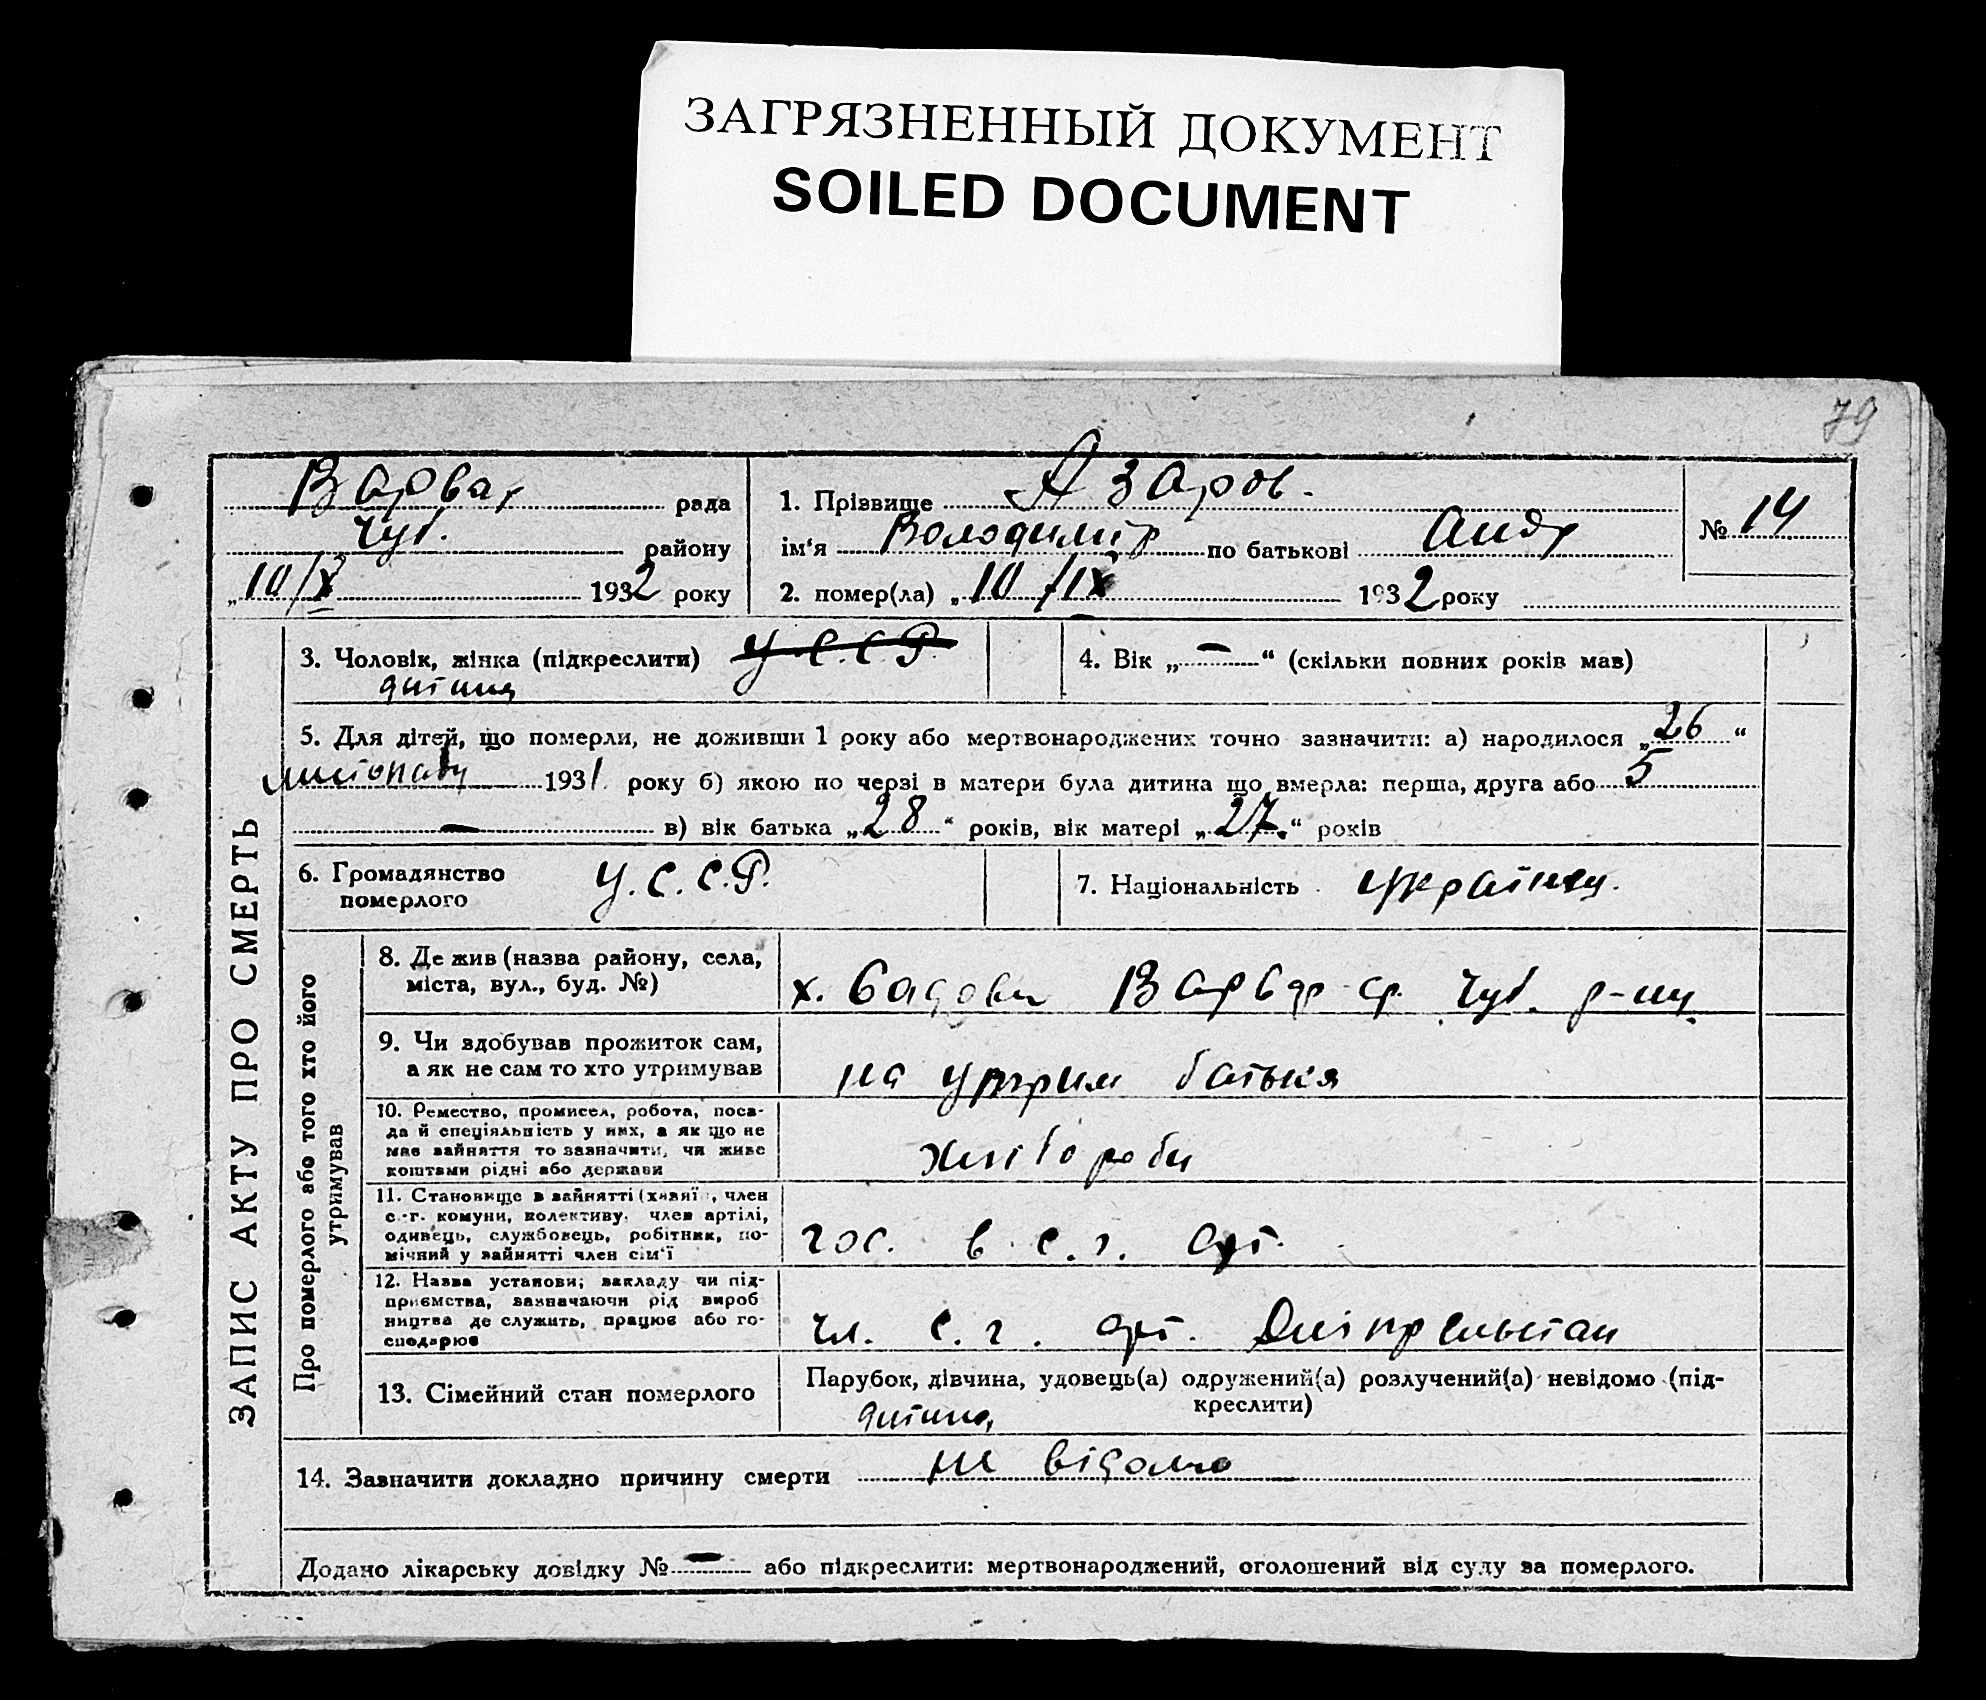 ЗАГРЯЗНЕННЫЙ ДОКУМЕНТ
SOILED DOCUMENT
79
Варвар рада
Чуб. району
„10/X 1932 року
1. Прізвище Азаров.
ім‘я Володимир по батькові Андр
2. помер(ла) „10/IX 1932 року
№ 14
ЗАПИС АКТУ ПРО СМЕРТЬ
3. Чоловік, жінка (підкреслити) У.С.С.Р.
дитина
4. Вік „—“ (скільки повних років мав)
5. Для дітей, що померли, не доживши 1 року або мертвонароджених точно зазначити: а) народилося „26“
листопаду 1931 року б) якою по черзі в матери була дитина що вмерла: перша, друга або 5
— в) вік батька „28“ років, вік матері „27“ років
6. Громадянство
померлого
У.С.С.Р.
7. Національність
Про померлого або того хто його
утримував
8. Де жив (назва району, села,
міста, вул., буд. №)
х. Варвар ср. Чуб. р-ну
9. Чи здобував прожиток сам,
а як не сам то хто утримував
на утрим батька
10. Ремество, промисел, робота, поса-
да й спеціяльність у них, а як що не
має зайняття то зазначити, чи живе
коштами рідні або держави
хлібороби
11. Становище в зайнятті (хазяї , член
с.-г. комуни, колективу, член артілі,
одивець, службовець, робітник, по-
мічний у зайнятті член сім‘ї
гос. в с.г. арт.
12. Назва установи, закладу чи під-
приємства, зазначаючи рід вироб
ництва де служить, працює або го-
сподарює
чл. с.г. арт. Дніпрельстан
13. Сімейний стан померлого
Парубок, дівчина, удовець(а) одружений(а) розлучений(а) невідомо (під-
креслити)
дитина
14. Зазначити докладно причину смерти не відомо
Додано лікарську довідку № — або підкреслити: мертвонароджений, оголошений від суду за померлого.